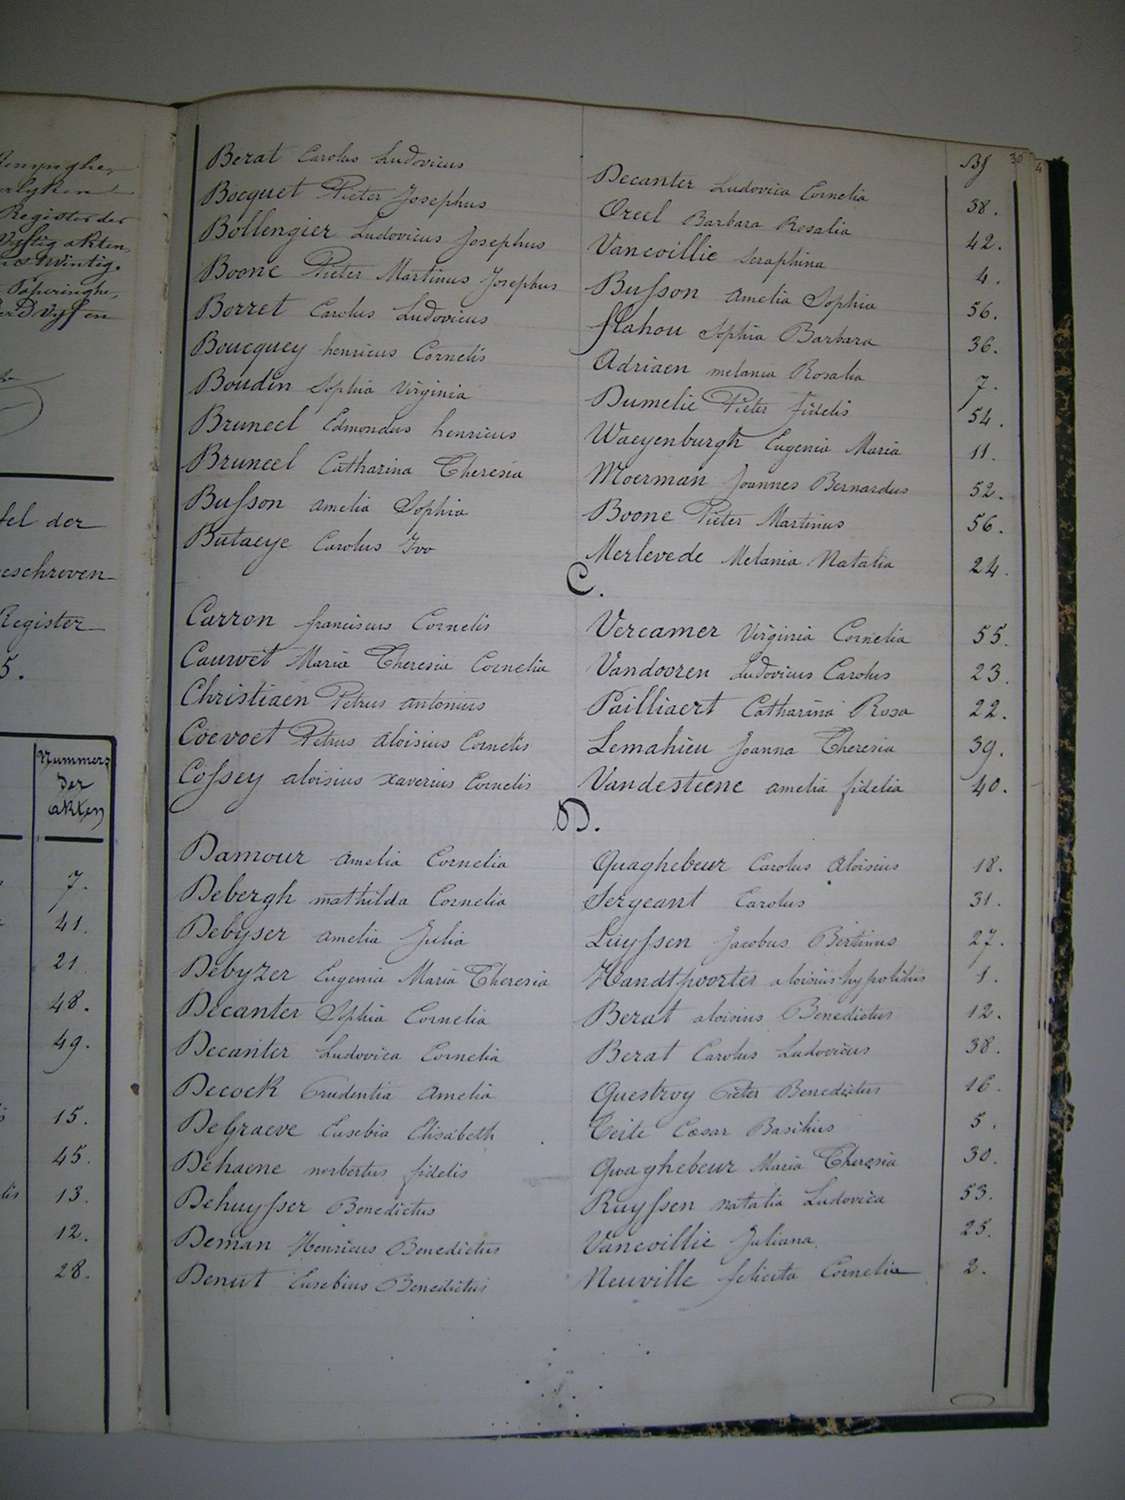 Register der
Vyftig akten
fel der
eschreven
Register
5.
Nummers
der
akten
7.
41.
21.
48.
49.
15.
45.
13.
12.
28.
Berat Carolus Ludovicus Decanter Ludovica Cornelia 38.
Bocquet Pieter Josephus Oreel Barbara Rosalia 42.
Bollengier Ludovicus Josephus Vancoillie Seraphina 4.
Boone Pieter Martinus Josephus Busson Amelia Sophia 56.
Borret Carolus Ludovicus flahou Sophia Barbara 36.
Boucquey henricus Cornelis Adriaen melania Rosalia 7.
Boudin Sophia Virginia Dumelie Pieter fidelis 54.
Bruneel Edmondus henricus Waeyenburgh Eugenia Maria 11.
Bruneel Catharina Theresia Moerman Joannes Bernardus 52.
Busson amelia Sophia Boone Pieter Martinus 56.
Butaeye Carolus Ivo Merlevede Melania Natalia 24.
C.
Carron franciscus Cornelis Vercamer Virginia Cornelia 55.
Cauwet Maria Theresia Cornelia Vandooren Ludovicus Carolus 23.
Christiaen Petrus antonius Pailliaert Catharina Rosa 22.
Coevoet Petrus aloisius Cornelis Lemahieu Joanna Theresia 39.
Cossey aloisius xaverius Cornelis Vandesteene amelia fidelia 40.
D.
Damour amelia Cornelia Quaghebeur Carolus aloisius 18.
Debergh mathilda Cornelia Sergeant Carolus 31.
Debyser amelia Julia Luyssen Jacobus Bertinus 27.
Debyzer Eugenia Maria Theresia Handtpoorter aloisius hypolitus 1.
Decanter Sophia Cornelia Berat aloisius Benedictus 12.
Decanter Ludovica Cornelia Berat Carolus Ludovicus 38.
Decock Prudentia Amelia Questroy Pieter Benedictus 16.
DeGraeve Eusebia Elisabeth Teite Cæsar Basilius 5.
Dehaene norbertus fidelis Quaghebeur Maria Theresia 30.
Dehuysser Benedictus Ruyssen natalia Ludovica 53.
Deman Henricus Benedictus Vancoillie Juliana 25.
Denut Eusebius Benedictus Neuville felicita Cornelia 2.